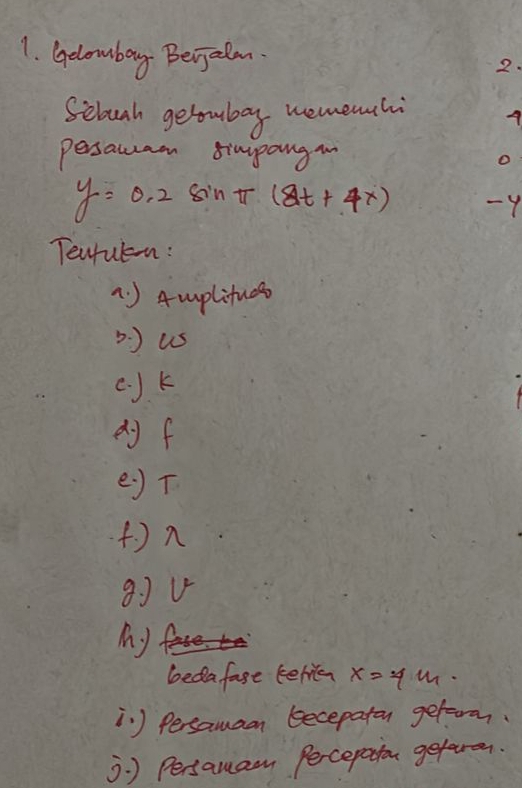 1. Gelombang Berjalan.
Sebuah gelombang memenuhi
persamaan simpangan
y = 0.2 sin π (8t + 4x)
Tentukan:
a.) Amplitudo
b.) ω
c.) k
d.) f
e.) T
f.) λ
g.) v
h.) fase
beda fase ketika x = 4 m.
i.) Persamaan kecepatan getaran.
j.) Persamaan Percepatan getaran.
2.
0
-4